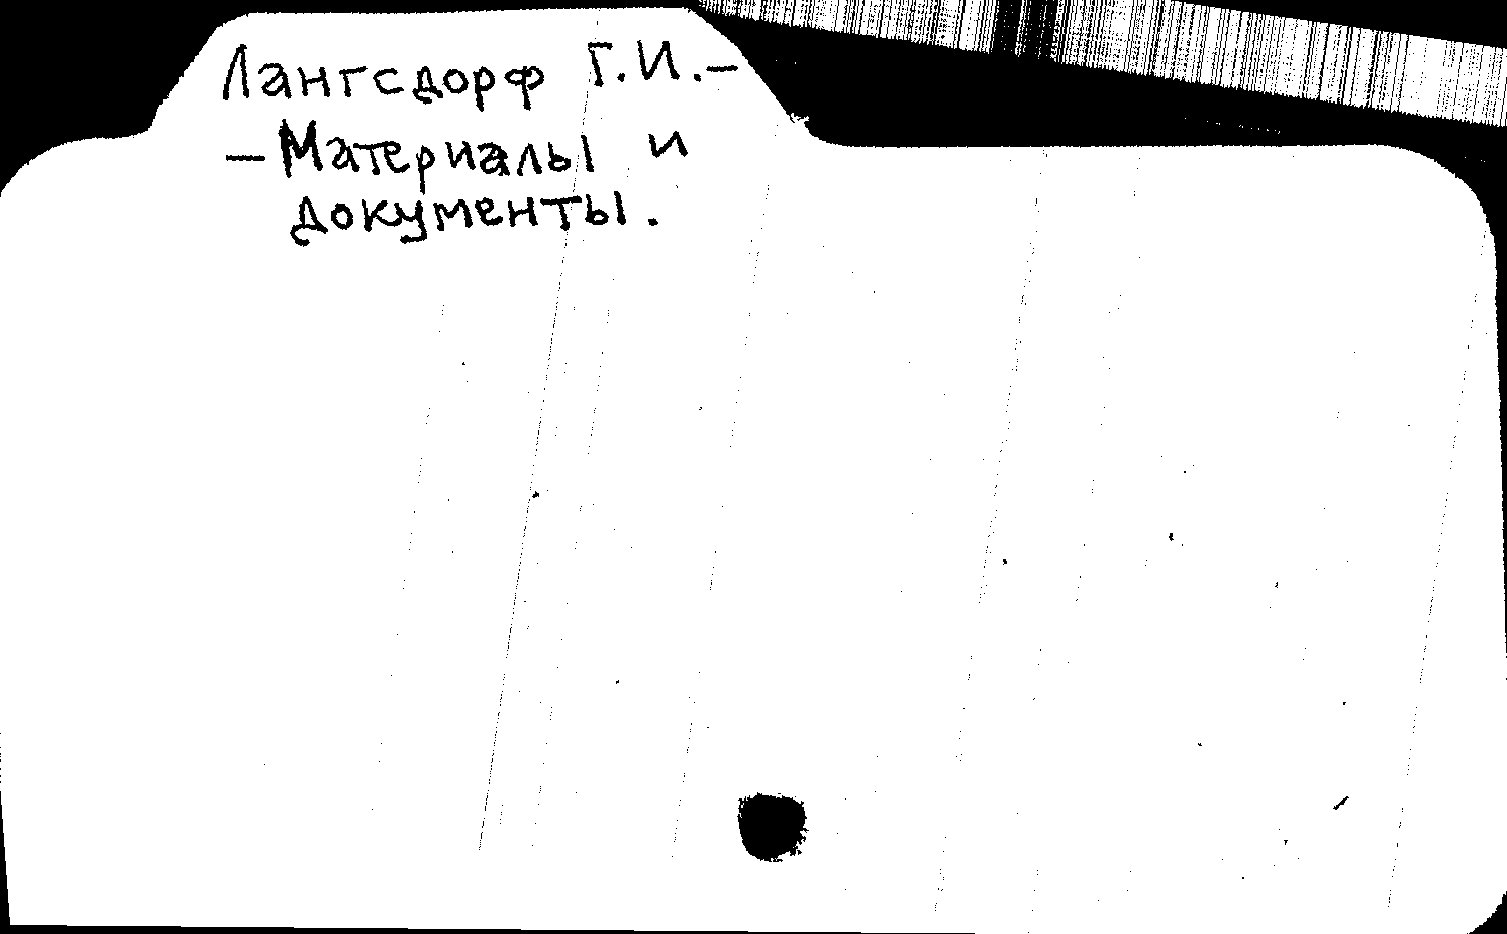 Лангсдорф Г.И.–
– Материалы и
документы.